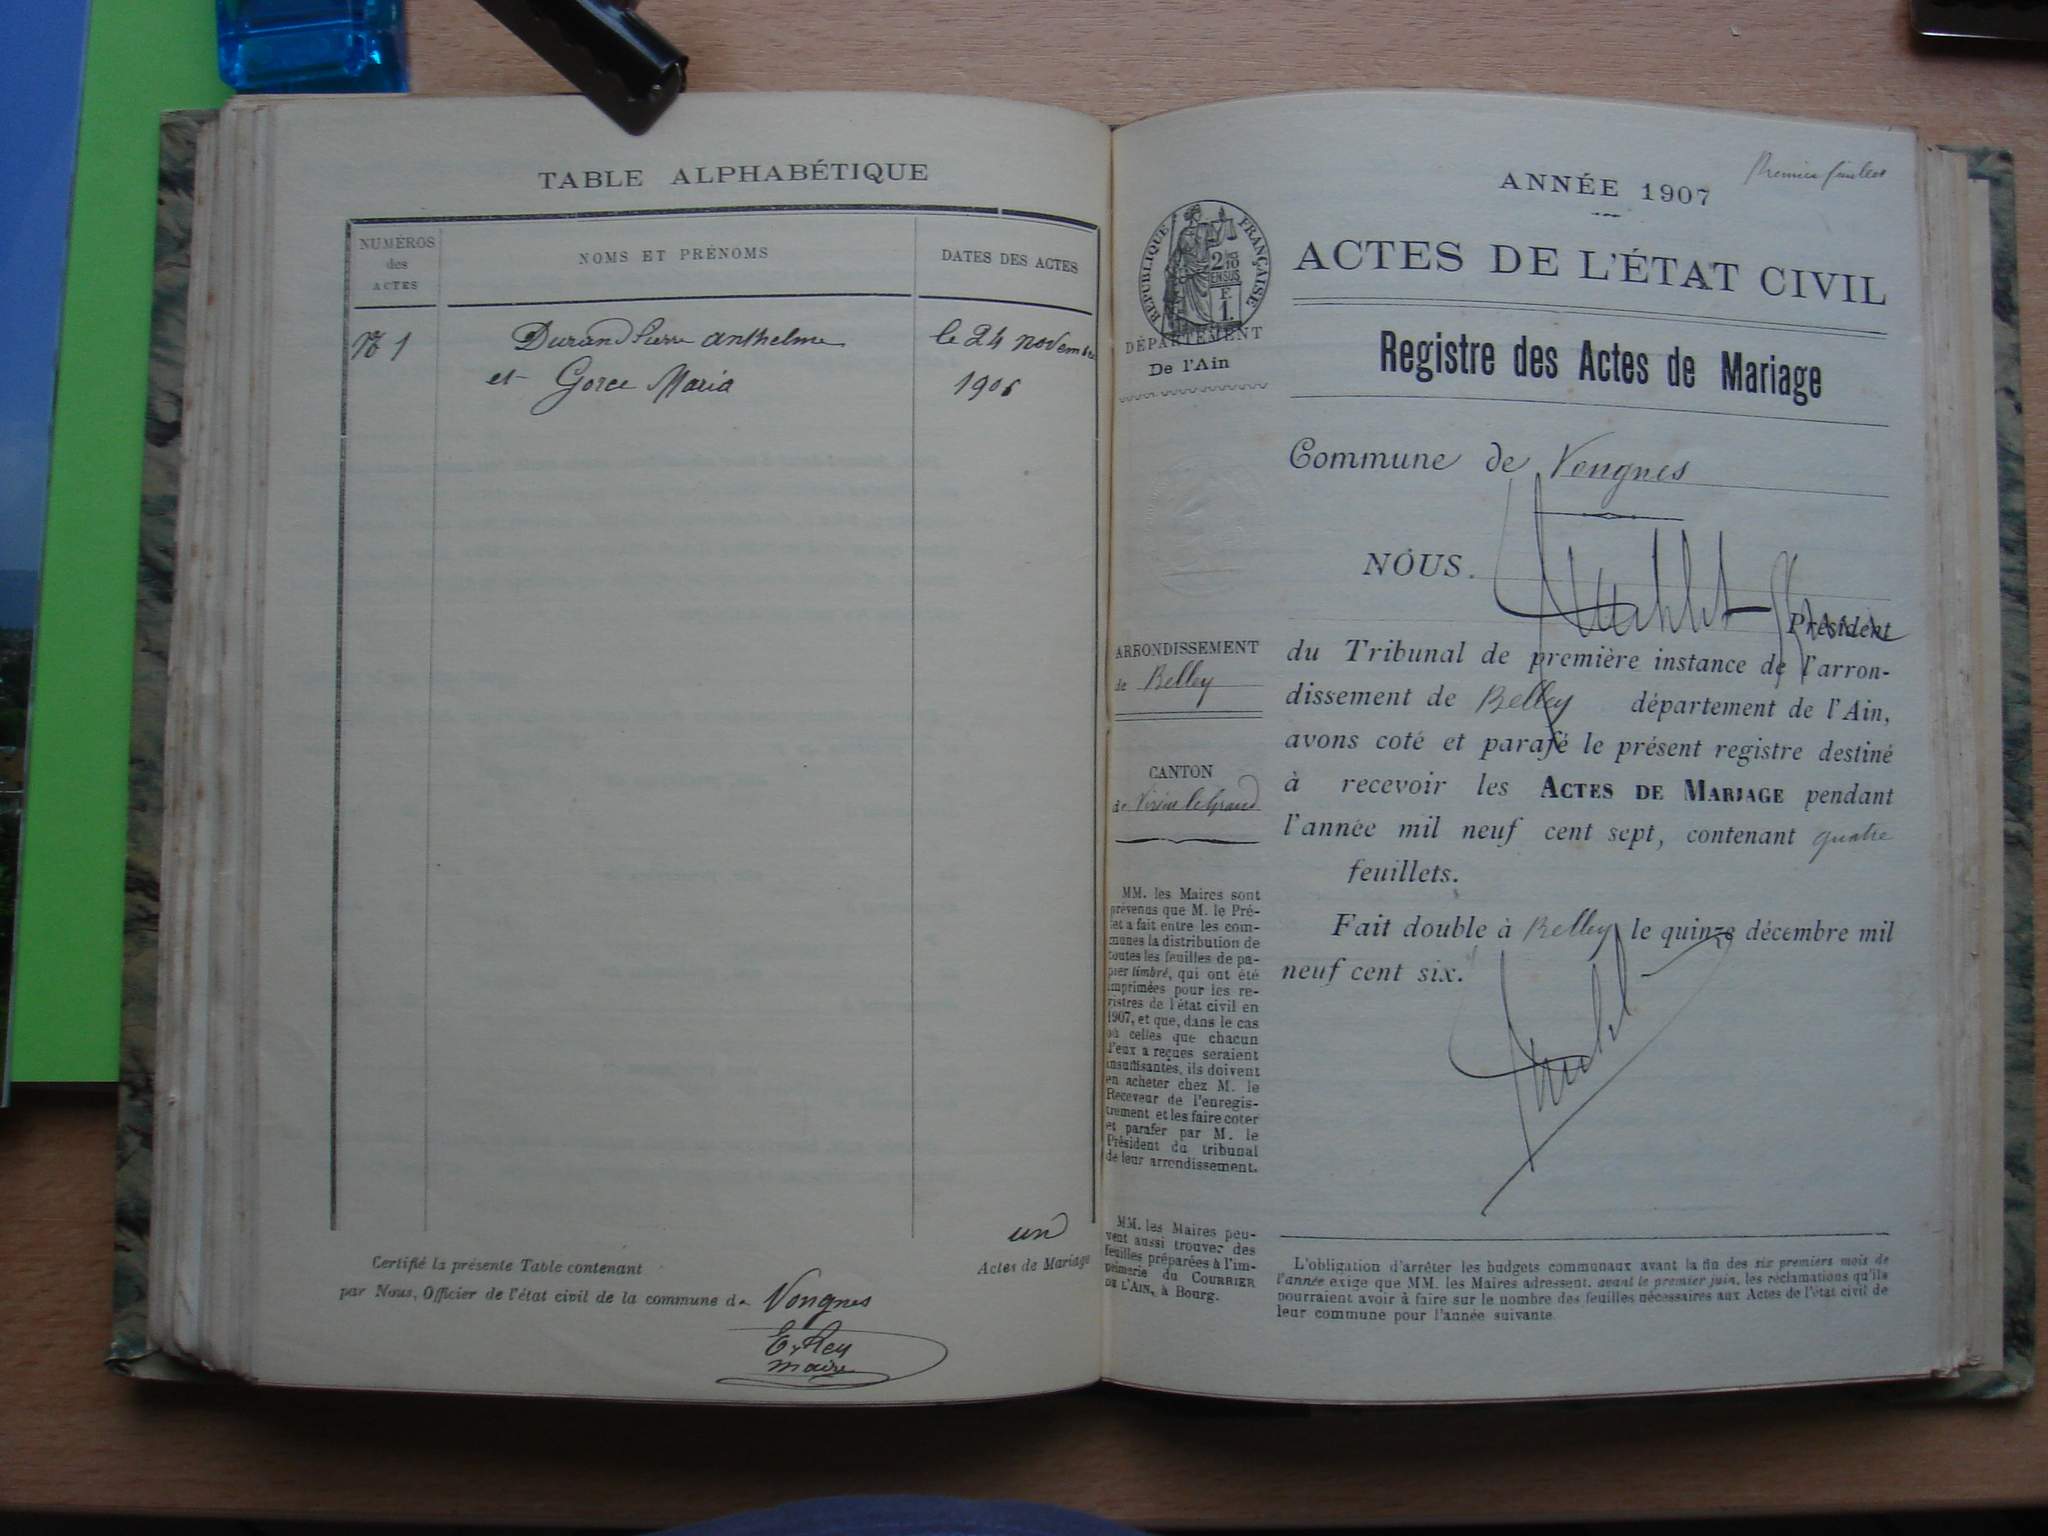 TABLE ALPHABÉTIQUE
NUMÉROS
des
ACTES
NOMS ET PRÉNOMS
DATES DES ACTES
N° 1
Durand Pierre anthelme
le 24 novembre
et Gorce Maria
1906
un
Certifié la présente Table contenant
Actes de Mariage
par Nous, Officier de l'état civil de la commune de Vongnes
E. Rey
maire
Premier feuillet
ANNÉE 1907
RÉPUBLIQUE FRANÇAISE
2
10
EN SUS
F.
1.
DÉPARTEMENT
De l'Ain
ACTES DE L'ÉTAT CIVIL
Registre des Actes de Mariage
Commune de Vongnes
NOUS
Président
ARRONDISSEMENT
de Belley
CANTON
de Virieu le Grand
du Tribunal de première instance de l'arron-
dissement de Belley département de l'Ain,
avons coté et parafé le présent registre destiné
à recevoir les ACTES DE MARIAGE pendant
l'année mil neuf cent sept, contenant quatre
feuillets.
Fait double à Belley le quinze décembre mil
neuf cent six.
MM. les Maires sont
prévenus que M. le Pré-
fet a fait entre les com-
munes la distribution de
toutes les feuilles de pa-
pier timbré, qui ont été
imprimées pour les re-
gistres de l'état civil en
1907, et que, dans le cas
où celles que chacun
d'eux a reçues seraient
insuffisantes, ils doivent
en acheter chez M. le
Receveur de l'enregis-
trement et les faire coter
et parafer par M. le
Président du tribunal
de leur arrondissement.
MM. les Maires peu-
vent aussi trouver des
feuilles préparées à l'im-
primerie du COURRIER
DE L'AIN, à Bourg.
L'obligation d'arrêter les budgets communaux avant la fin des six premiers mois de
l'année exige que MM. les Maires adressent, avant le premier juin, les réclamations qu'ils
pourraient avoir à faire sur le nombre des feuilles nécessaires aux Actes de l'état civil de
leur commune pour l'année suivante.